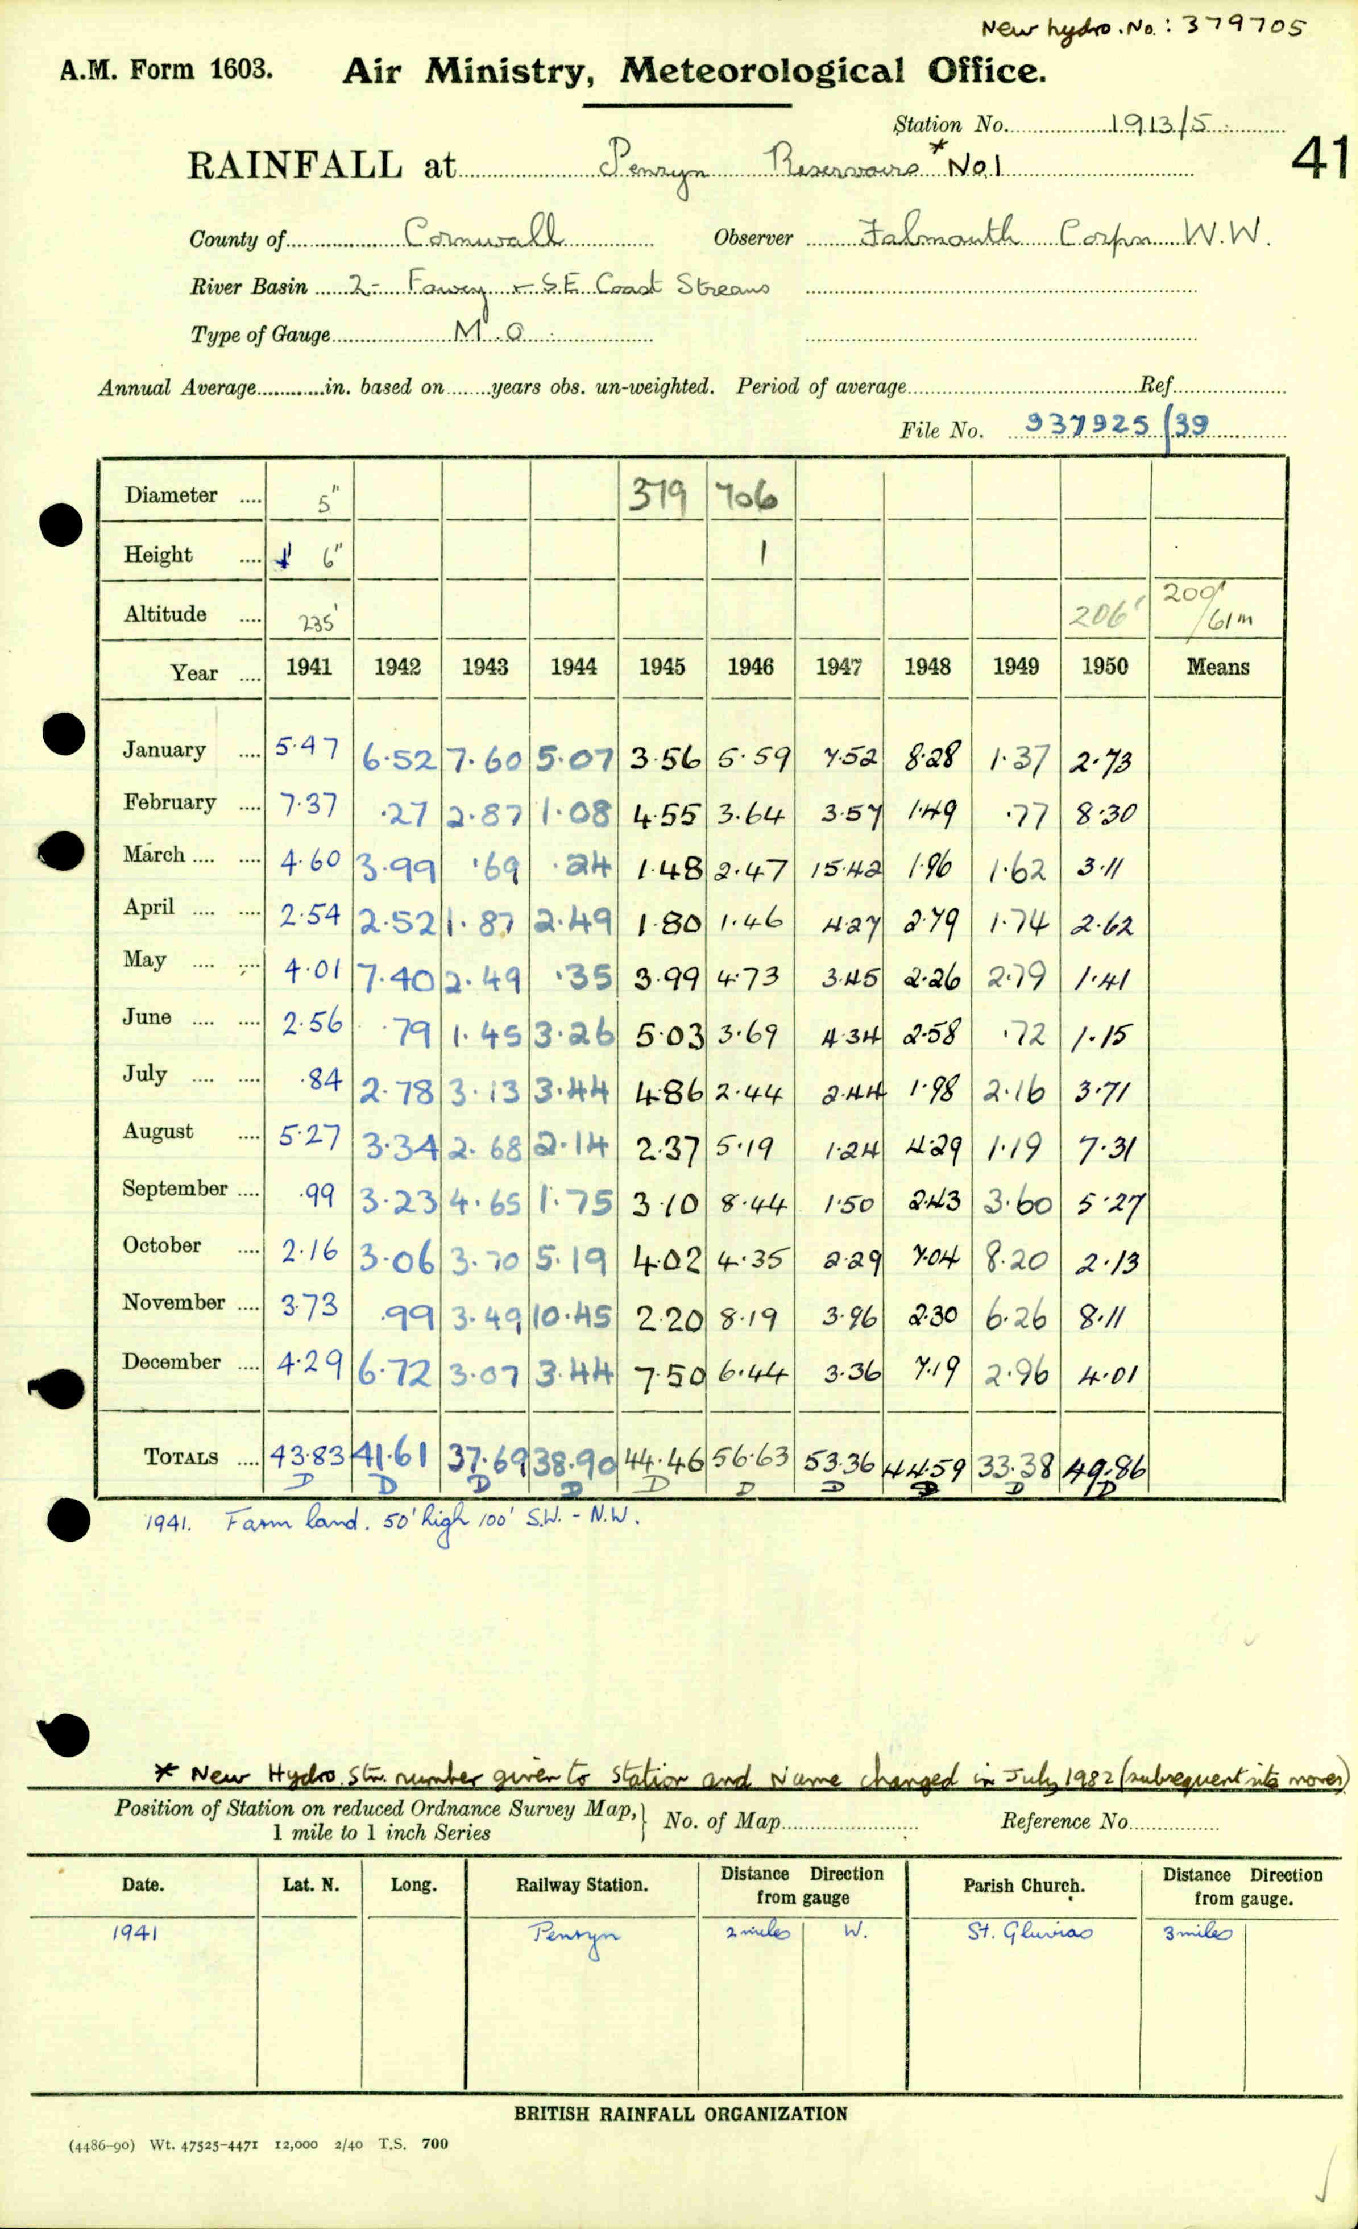 New hydro. No.: 379705
A.M. Form 1603. Air Ministry, Meteorological Office.
Station No. 1913/5
41
RAINFALL at Penryn Reservoirs * No.1
County of Cornwall Observer Falmouth Corpn W.W.
River Basin 2- Fowey & S E Coast Streams
Type of Gauge M.O.
Annual Average in. based on years obs. un-weighted. Period of average Ref
File No. 937925/39
Diameter 5" 379 706
Height 1' 6" 1
Altitude 235' 206' 200'/61m
Year 1941 1942 1943 1944 1945 1946 1947 1948 1949 1950 Means
January 5.47 6.52 7.60 5.07 3.56 5.59 7.52 8.28 1.37 2.73
February 7.37 .27 2.87 1.08 4.55 3.64 3.57 1.49 .77 8.30
March 4.60 3.99 .69 .24 1.48 2.47 15.42 1.96 1.62 3.11
April 2.54 2.52 1.87 2.49 1.80 1.46 4.27 2.79 1.74 2.62
May 4.01 7.40 2.49 .35 3.99 4.73 3.45 2.26 2.79 1.41
June 2.56 .79 1.45 3.26 5.03 3.69 4.34 2.58 .72 1.15
July .84 2.78 3.13 3.44 4.86 2.44 2.44 1.98 2.16 3.71
August 5.27 3.34 2.68 2.14 2.37 5.19 1.24 4.29 1.19 7.31
September .99 3.23 4.65 1.75 3.10 8.44 1.50 2.43 3.60 5.27
October 2.16 3.06 3.70 5.19 4.02 4.35 2.29 7.04 8.20 2.13
November 3.73 .99 3.49 10.45 2.20 8.19 3.96 2.30 6.26 8.11
December 4.29 6.72 3.07 3.44 7.50 6.44 3.36 7.19 2.96 4.01
TOTALS 43.83 41.61 37.69 38.90 44.46 56.63 53.36 44.59 33.38 49.86
D D D D D D D D D D
1941. Farm land. 50' high 100' S.W. - N.W.
* New Hydro. Stn. number given to Station and Name changed in July 1982 (subsequent site moves)
Position of Station on reduced Ordnance Survey Map, 1 mile to 1 inch Series } No. of Map Reference No.
Date. Lat. N. Long. Railway Station. Distance Direction from gauge Parish Church. Distance Direction from gauge.
1941 Penryn 2 miles W. St. Gluvias 3 miles
BRITISH RAINFALL ORGANIZATION
(4486-90) Wt. 47525-4471 12,000 2/40 T.S. 700